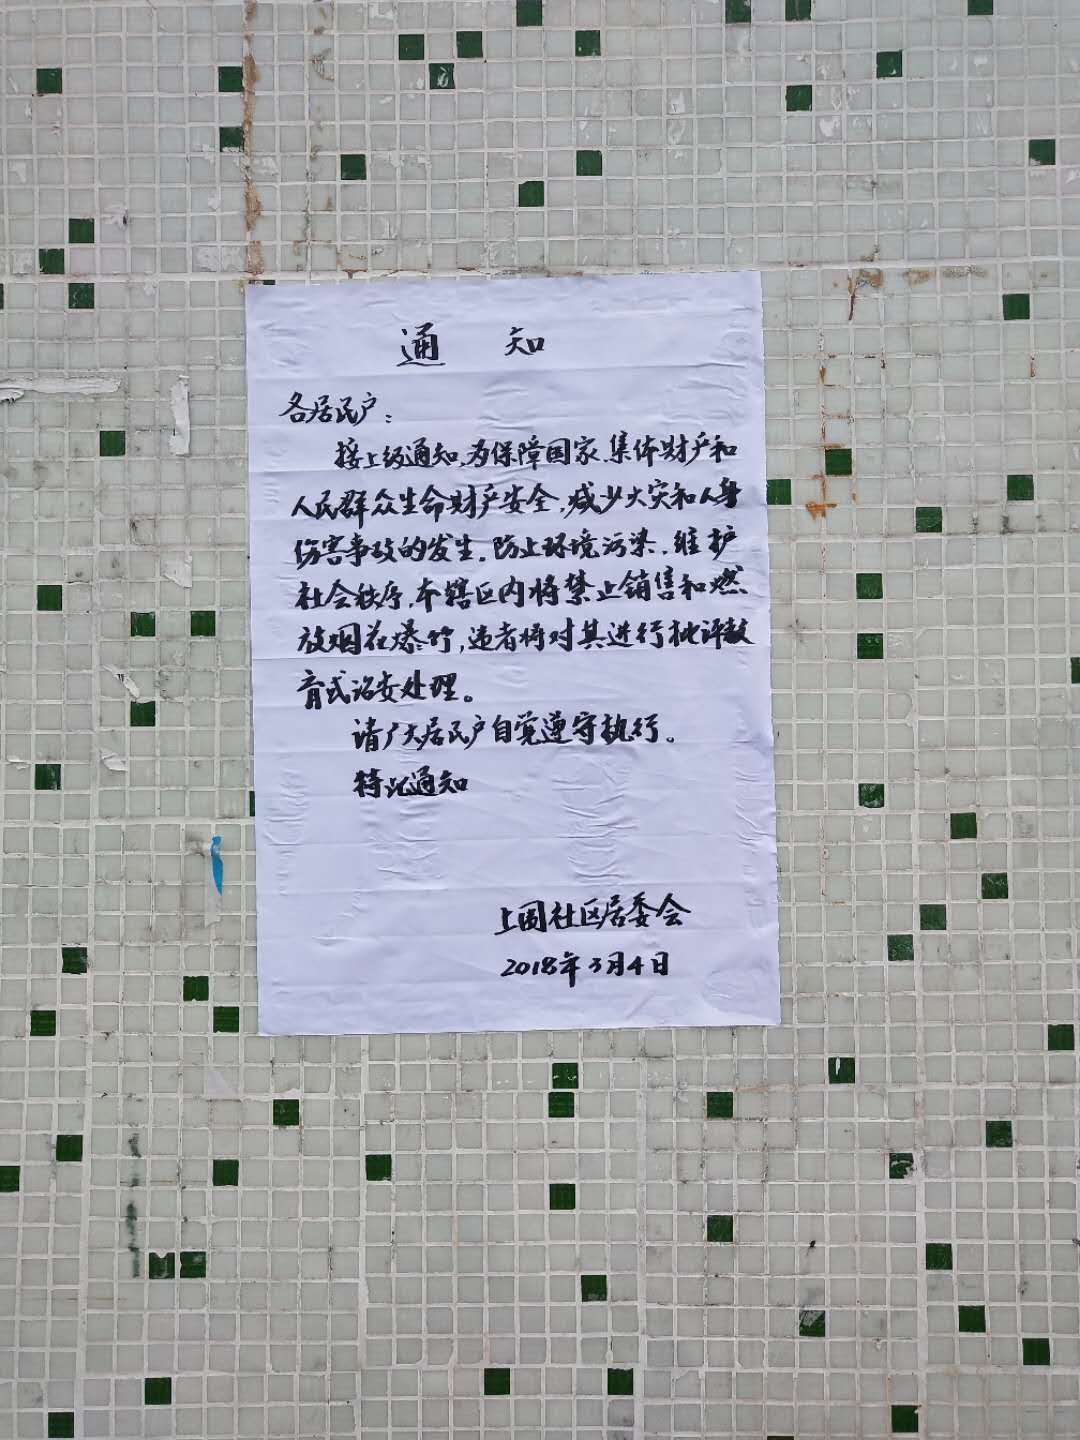 通 知
各居民户：
接上级通知，为保障国家、集体财产和
人民群众生命财产安全，减少火灾和人身
伤害事故的发生，防止环境污染，维护
社会秩序，本辖区内将禁止销售和燃
放烟花爆竹，违者将对其进行批评教
育或治安处理。
请广大居民户自觉遵守执行。
特此通知
上围社区居委会
2018年3月4日